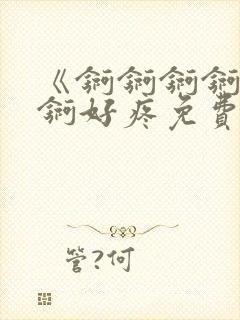 《锕锕锕锕
锕好疼免費
管?何